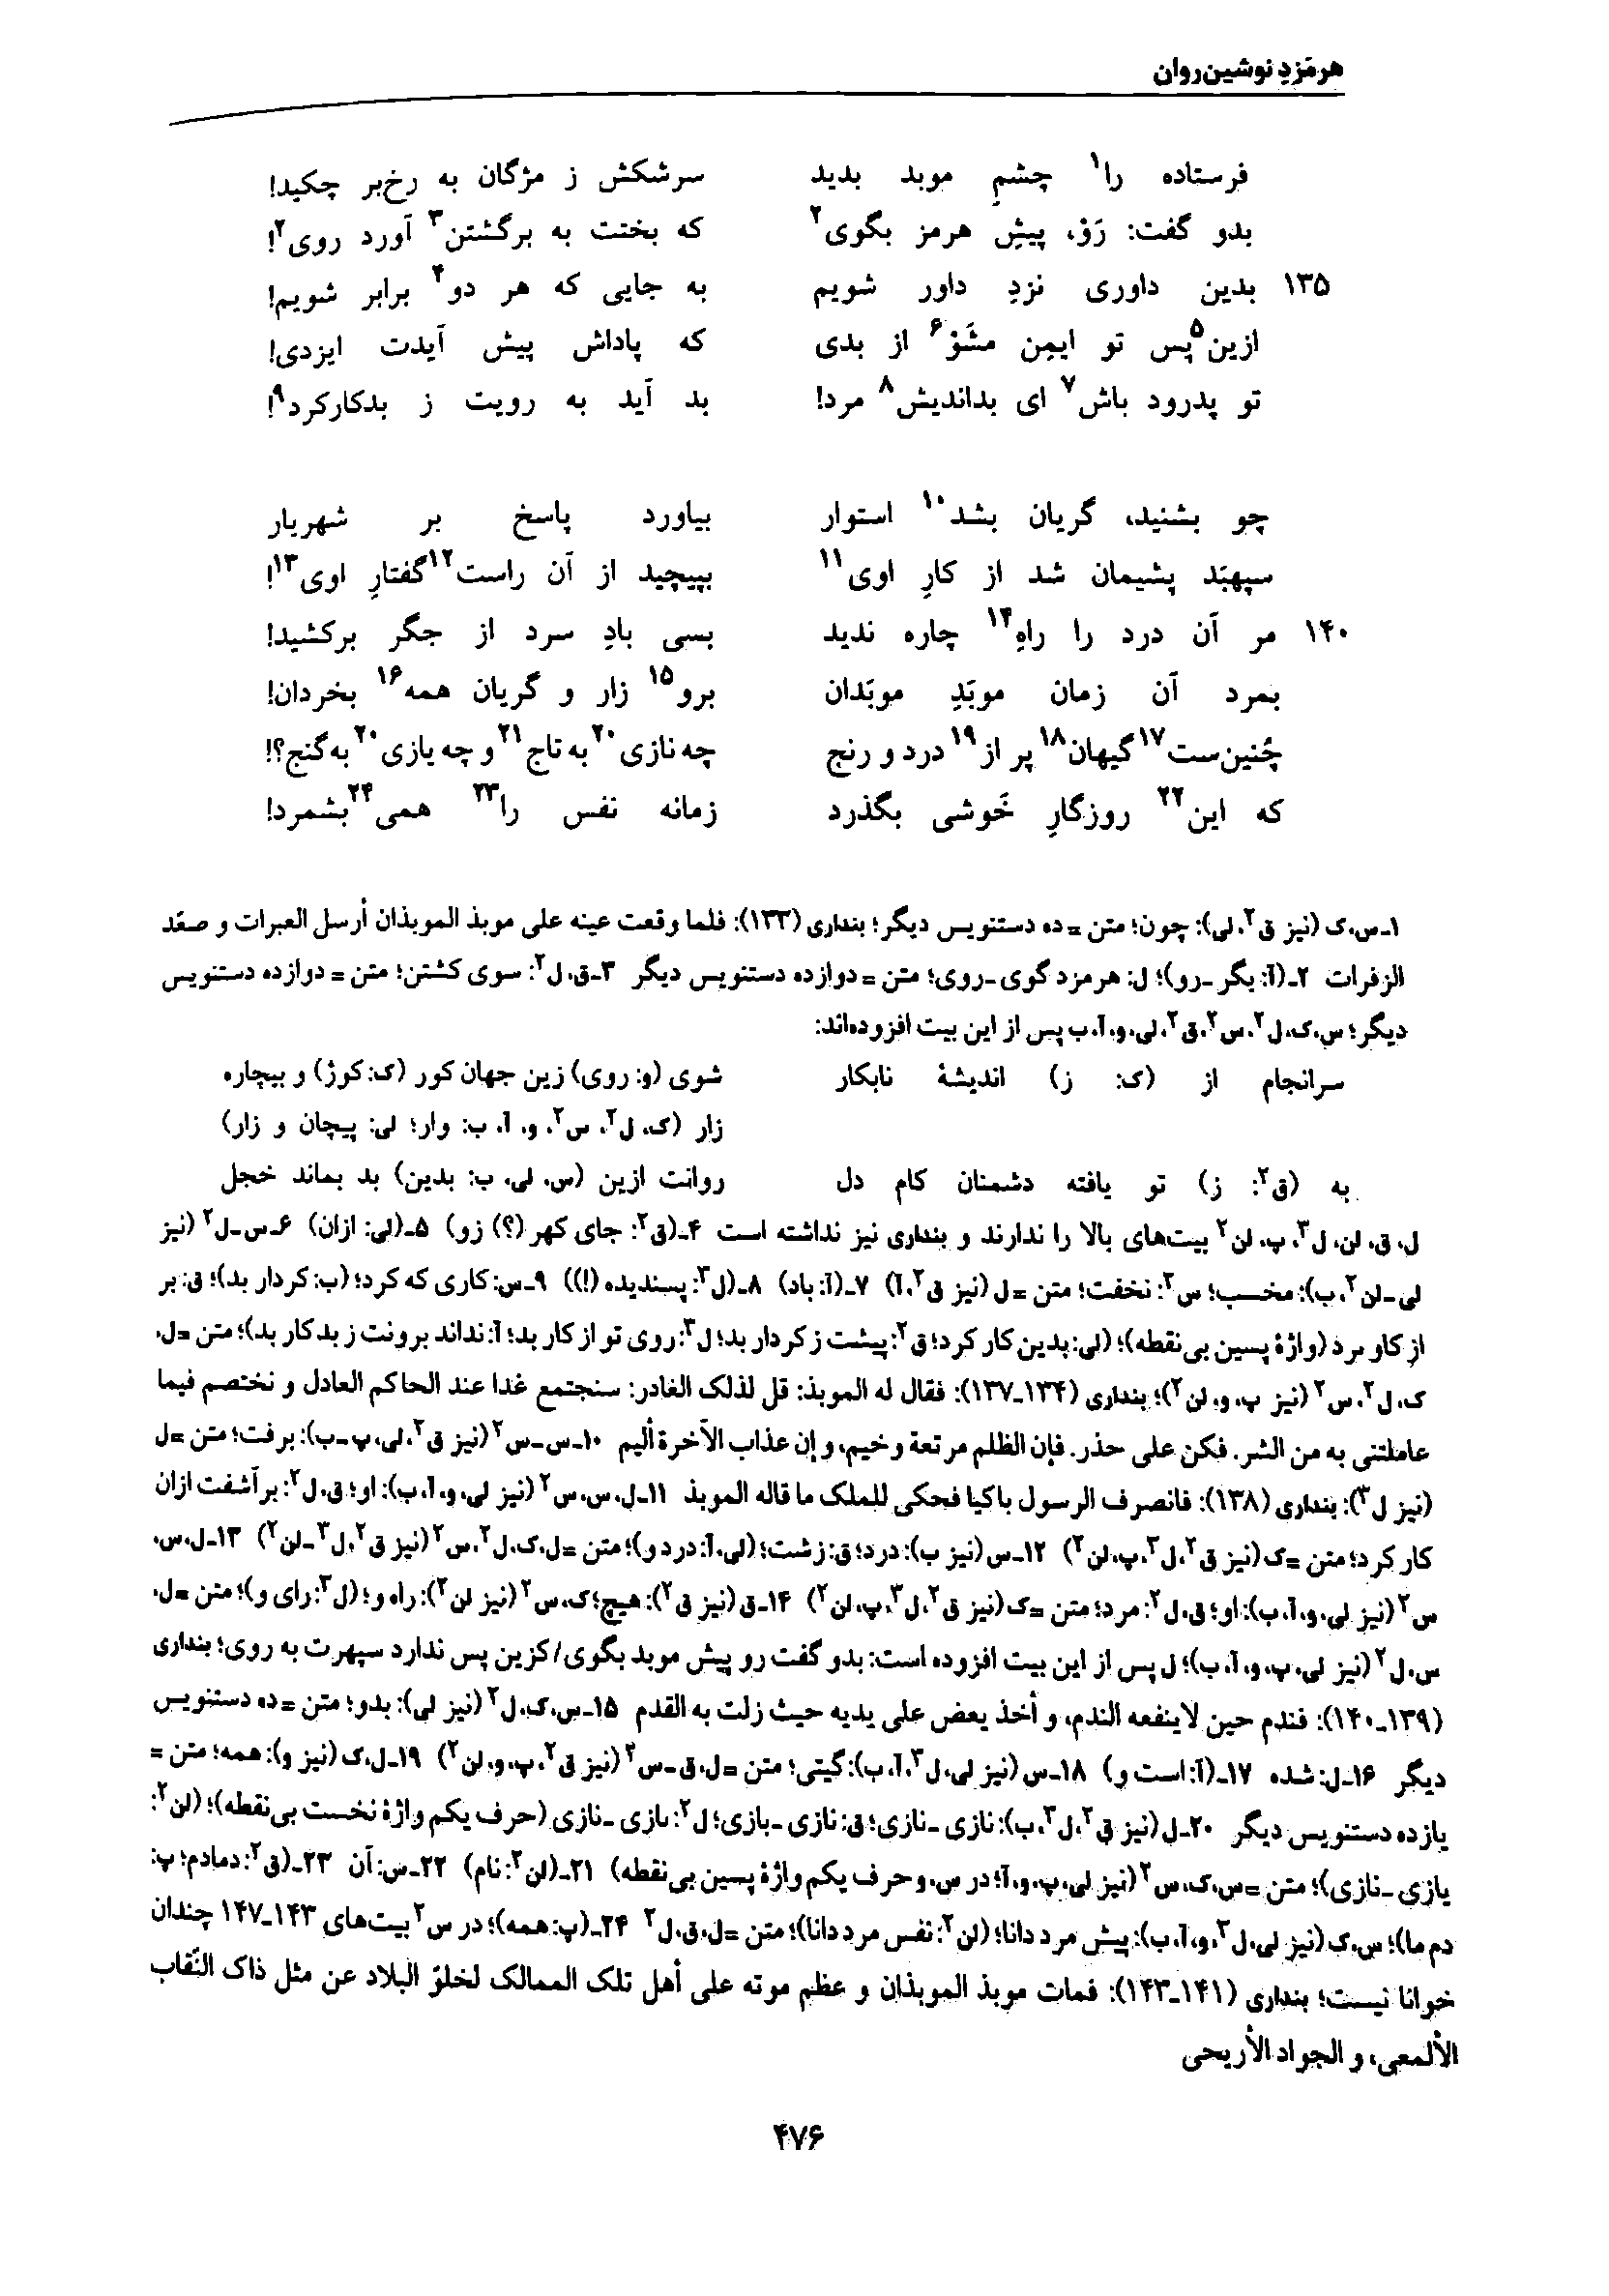 هرمَزدِ نوشین‌روان
فرستاده را۱ چشمِ موبد بدید سرشکش ز مژگان به رخ‌بر چکید!
بدو گفت: رَوْ، پیشِ هرمز بگوی۲ که بختت به برگشتن۳ آورد روی۲!
۱۳۵ بدین داوری نزدِ داور شویم به جایی که هر دو۴ برابر شویم!
ازین۵پس تو ایمِن مشَوْ۶ از بدی که پاداش پیش آیدت ایزدی!
تو پدرود باش۷ ای بداندیش۸ مرد! بد آید به رویت ز بدکارکرد۹!
چو بشنید، گریان بشد۱۰ استوار بیاورد پاسخ بر شهریار
سپهبَد پشیمان شد از کارِ اوی۱۱ بپیچید از آن راست۱۲گفتارِ اوی۱۳!
۱۴۰ مر آن درد را راهِ۱۴ چاره ندید بسی بادِ سرد از جگر برکشید!
بمرد آن زمان موبَدِ موبَدان برو۱۵ زار و گریان همه۱۶ بخردان!
چُنین‌ست۱۷گیهان۱۸پر از۱۹درد و رنج چه نازی۲۰به تاج۲۱و چه یازی۲۰به‌گنج؟!
که این۲۲ روزگارِ خَوشی بگذرد زمانه نفس را۲۳ همی۲۴بشمرد!
۱ـ‌س، ک (نیز ق۲، لی): چون؛ متن = ده دستنویس دیگر؛ بنداری (۱۳۳): فلما وقعت عینه علی موبذ الموبذان أرسل العبرات و صعّد
الزفرات ۲ـ(آ: بگر ـ رو)؛ ل: هرمزد گوی ـ روی؛ متن = دوازده دستنویس دیگر ۳ـ‌ق، ل۲: سوی کشتن؛ متن = دوازده دستنویس
دیگر؛ س، ک، ل۲، س۲، ق۲، لی، و، آ، ب پس از این بیت افزوده‌اند:
سرانجام از (ک: ز) اندیشهٔ نابکار شوی (و: روی) زین جهان کور (ک: کوژ) و بیچاره
زار (ک، ل۲، س۲، و، آ، ب: وار؛ لی: پیچان و زار)
به (ق۲: ز) تو یافته دشمنان کام دل روانت ازین (س، لی، ب: بدین) بد بماند خجل
ل، ق، لن، ل۳، پ، لن۲ بیت‌های بالا را ندارند و بنداری نیز نداشته است ۴ـ(ق۲: جای کهر (؟) زو) ۵ـ(لی: ازان) ۶ـ‌س‌ـ‌ل۲ (نیز
لی‌ـ‌لن۲، ب): مخسب؛ س۲: نخفت؛ متن = ل (نیز ق۲، آ) ۷ـ(آ: باد) ۸ـ(ل۳: پسندیده (!)) ۹ـ‌س: کاری که کرد؛ (ب: کردار بد)؛ ق: بر
از کاو برد (واژهٔ پسین بی‌نقطه)؛ (لی: بدین کار کرد؛ ق۲: پیشت ز کردار بد؛ ل۳: روی تو از کار بد؛ آ: نداند برونت ز بدکار بد)؛ متن = ل،
ک، ل۲، س۲ (نیز پ، و، لن۲)؛ بنداری (۱۳۴ـ۱۳۷): فقال له الموبذ: قل لذلک الغادر: سنجتمع غدا عند الحاکم العادل و نختصم فیما
عاملتنی به من الشر. فکن علی حذر. فإن الظلم مرتعة وخیم، و إن عذاب الآخرة ألیم ۱۰ـ‌س‌ـ‌س۲ (نیز ق۲، لی، پ‌ـ‌ب): برفت؛ متن = ل
(نیز ل۳): بنداری (۱۳۸): فانصرف الرسول باکیا فحکی للملک ما قاله الموبذ ۱۱ـ‌ل، س، س۲ (نیز لی، و، آ، ب): او؛ ق، ل۲: برآشفت ازان
کار کرد؛ متن = ک (نیز ق۲، ل۳، پ، لن۲) ۱۲ـ‌س (نیز ب): درد؛ ق: زشت؛ (لی، آ: درد و)؛ متن = ل، ک، ل۲، س۲ (نیز ق۲، ل۳ـ‌لن۲) ۱۳ـ‌ل، س،
س۲ (نیز لی، و، آ، ب): او؛ ق، ل۲: مرد؛ متن = ک (نیز ق۲، ل۳، پ، لن۲) ۱۴ـ‌ق (نیز ق۲): هیچ؛ ک، س۲ (نیز لن۲): راه و؛ (ل۳: رای و)؛ متن = ل،
س، ل۲ (نیز لی، پ، و، آ، ب)؛ ل پس از این بیت افزوده است: بدو گفت رو پیش موبد بگوی/کزین پس ندارد سپهرت به روی؛ بنداری
(۱۳۹ـ۱۴۰): فندم حین لاینفعه الندم، و أخذ یعض علی یدیه حیث زلت به القدم ۱۵ـ‌س، ک، ل۲ (نیز لی): بدو؛ متن = ده دستنویس
دیگر ۱۶ـ‌ل: شده ۱۷ـ(آ: است و) ۱۸ـ‌س (نیز لی، ل۳، آ، ب): گیتی؛ متن = ل، ق‌ـ‌س۲ (نیز ق۲، پ، و، لن۲) ۱۹ـ‌ل، ک (نیز و): همه؛ متن =
یازده دستنویس دیگر ۲۰ـ‌ل (نیز ق۲، ل۳، ب): نازی ـ نازی؛ ق: نازی ـ بازی؛ ل۲: ٮازی ـ نازی (حرف یکم واژهٔ نخست بی‌نقطه)؛ (لن۲:
یازی ـ نازی)؛ متن = س، ک، س۲ (نیز لی، پ، و، آ؛ در س، و حرف یکم واژهٔ پسین بی‌نقطه) ۲۱ـ(لن۲: نام) ۲۲ـ‌س: آن ۲۳ـ(ق۲: دمادم؛ پ:
دم ما)؛ س، ک (نیز لی، ل۳، و، آ، ب): پیش مرد دانا؛ (لن۲: نفس مرد دانا)؛ متن = ل، ق، ل۲ ۲۴ـ(پ: همه)؛ در س۲ بیت‌های ۱۴۳ـ۱۴۷ چندان
خوانا نیست؛ بنداری (۱۴۱ـ۱۴۳): فمات موبذ الموبذان و عظم موته علی أهل تلک الممالک لخلوّ البلاد عن مثل ذاک النّقاب
الألمعی، و الجواد الأریحی
۴۷۶